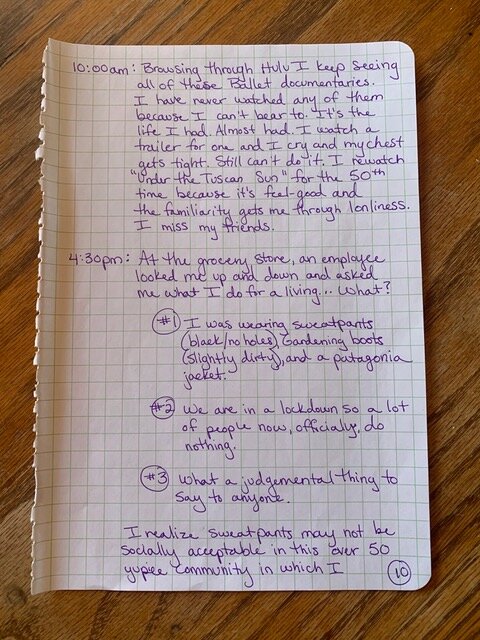 10:00am: Browsing through Hulu I keep seeing
all of these Ballet documentaries.
I have never watched any of them
because I can't bear to. It's the
life I had. Almost had. I watch a
trailer for one and I cry and my chest
gets tight. Still can't do it. I rewatch
"Under the Tuscan Sun" for the 50th
time because it's feel-good and
the familiarity gets me through lonliness.
I miss my friends.
4:30pm: At the grocery store, an employee
looked me up and down and asked
me what I do for a living... What?
#1 I was wearing sweatpants
(black/no holes), Gardening boots
(slightly dirty), and a patagonia
jacket.
#2 We are in a lockdown so a lot
of people now, officially, do
nothing.
#3 What a judgemental thing to
say to anyone.
I realize sweatpants may not be
socially acceptable in this over 50
yupee community in which I
10